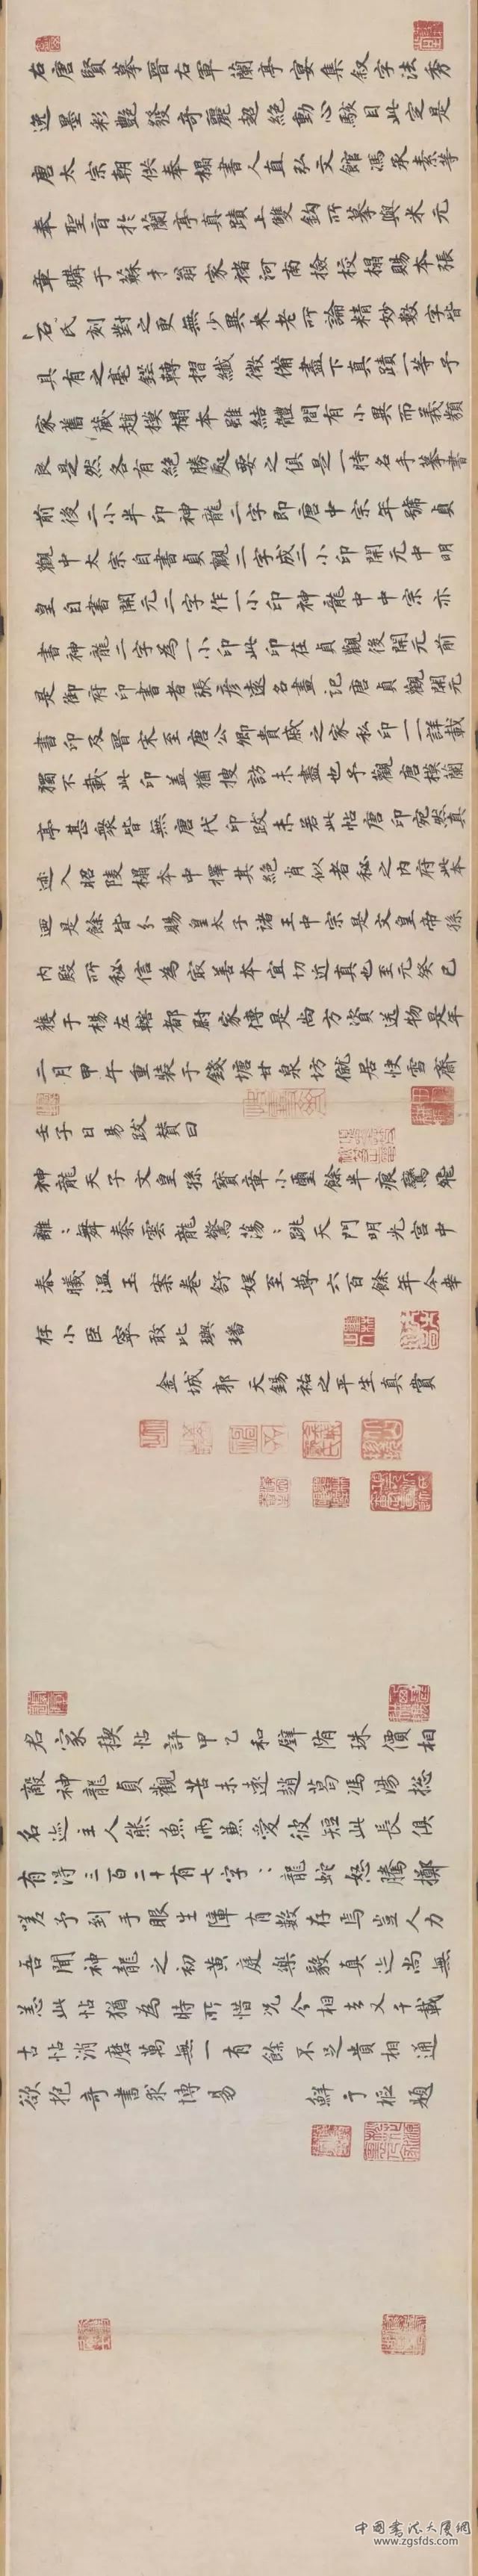 右唐賢摹晉右軍蘭亭宴集叙字法秀
逸墨彩艷發奇麗超絕動心駭目此定是
唐太宗朝供奉榻書人直弘文館馮承素等
奉聖旨於蘭亭真蹟上雙鈎所摹與米元
章購于蘇才翁家褚河南撿校榻賜本張
石氏刻對之更無少異米老所論精妙數字皆
具有之毫鋩轉摺纖微備盡下真蹟一等予
家舊藏趙模榻本雖結體間有小異而義類
良是然各有絕勝處要之俱是一時名手摹書
前後二小半印神龍二字即唐中宗年號貞
觀中太宗自書貞觀二字成二小印開元中明
皇自書開元二字作一小印神龍中中宗亦
書神龍二字為一小印此印在貞觀後開元前
是御府印書者張彥遠名畫記唐貞觀開元
書印及晉宋至唐公卿貴戚之家私印一一詳載
獨不載此印盖猶搜訪未盡也予觀唐模蘭
亭甚衆皆無唐代印跋未若此帖唐印宛然真
迹入昭陵榻本中擇其絕肖似者秘之內府此本
迺是餘皆分賜皇太子諸王中宗是文皇帝孫
內殿所秘信為寂善本宜切近真也至元癸巳
獲于楊左轄都尉家傳是尚方資送物是年
二月甲午重裝于錢塘甘泉坊僦居快雪齋
壬子日易跋贊曰
神龍天子文皇孫寶章小璽餘半痕鸞飛
離離舞秦雲龍驚蕩蕩跳天門明光宮中
春曦溫玉案卷舒娛至尊六百餘年今幸
存小臣寧敢比璵璠
金城郭天錫祐之平生真賞
君家稧帖評甲乙和璧隋珠價相
敵神龍貞觀苦未遠趙葛馮湯揔
名迹主人熊魚兩兼愛彼短此長俱
有得三百二十有七字字龍蛇怒騰擲
嗟予到手眼生障有數存焉豈人力
吾聞神龍之初黃庭樂毅真迹尚無
恙此帖猶為時所惜況今相去又千載
古帖消磨萬無一有餘不足貴相通
欲抱奇書求博易 鮮于樞題
中國書法大廈網
www.zgsfds.com